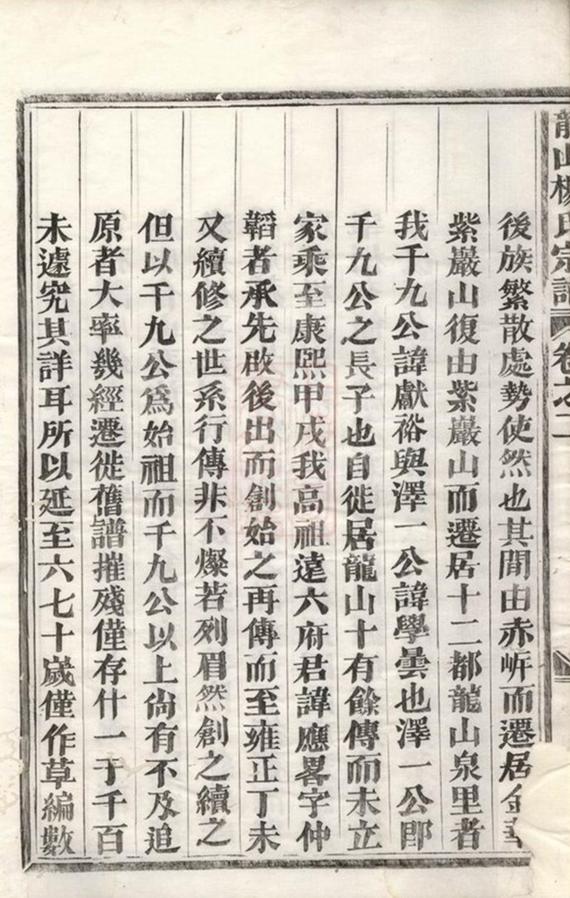 龍山楊氏宗譜 卷之二
後族繁散處勢使然也其間由赤岓而遷居金華
紫巖山復由紫巖山而遷居十二都龍山泉里者
我千九公諱獻裕與澤一公諱學曇也澤一公郎
千九公之長子也自徙居龍山十有餘傳而未立
家乘至康熙甲戌我高祖遠六府君諱應畧字仲
韜者承先啟後出而創始之再傳而至雍正丁未
又續修之世系行傳非不燦若列眉然創之續之
但以千九公爲始祖而千九公以上尙有不及追
原者大率幾經遷徙舊譜摧殘僅存什一于千百
未遽究其詳耳所以延至六七十歲僅作草編數